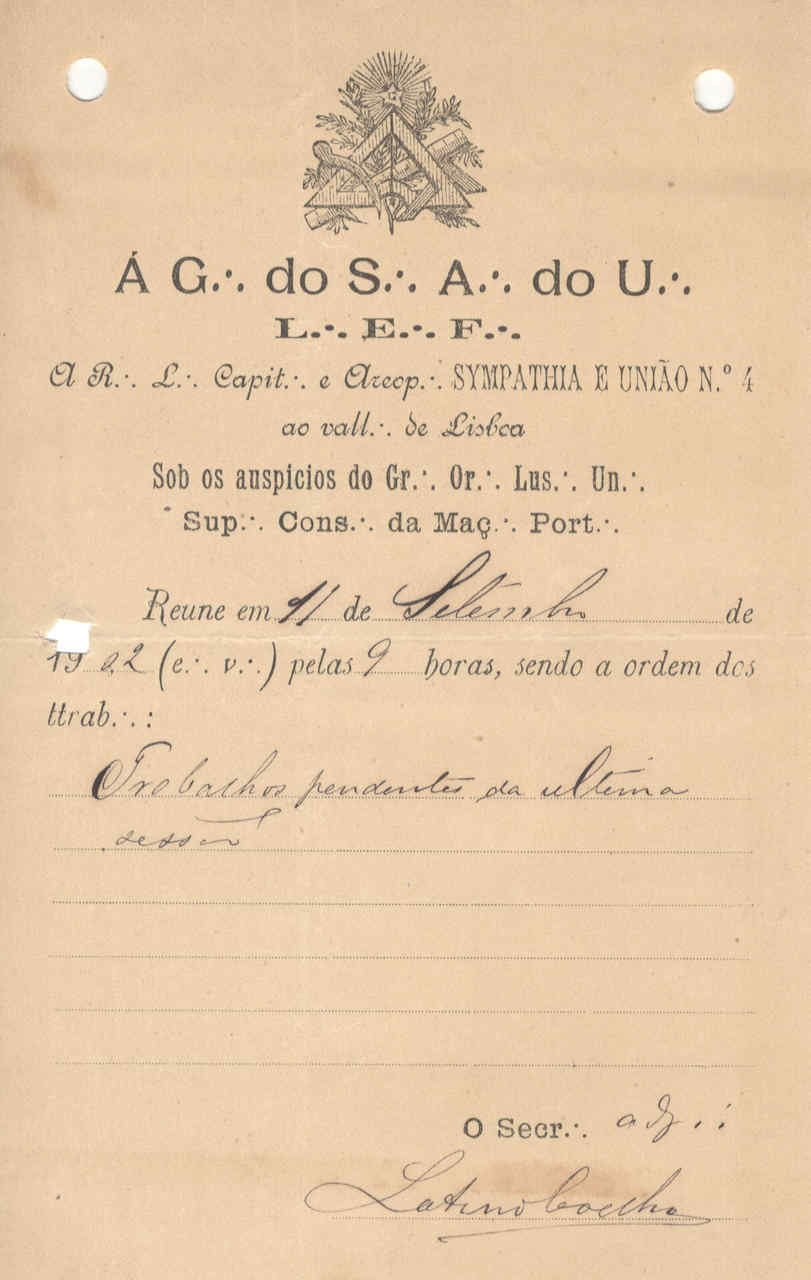 Á G.·. do S.·. A.·. do U.·.
L.·. E.·. F.·.
A R.·. L.·. Capit.·. e Areop.·. SYMPATHIA E UNIÃO N.º 4
ao vall.·. de Lisboa
Sob os auspicios do Gr.·. Or.·. Lus.·. Un.·.
Sup.·. Cons.·. da Maç.·. Port.·.
Reune em 11 de Setembro de
1902 (e.·. v.·.) pelas 9 horas, sendo a ordem dos
ttrab.·. :
Trabalhos pendentes da ultima
sessão
O Secr.·. adj.·.
Latino Coelho